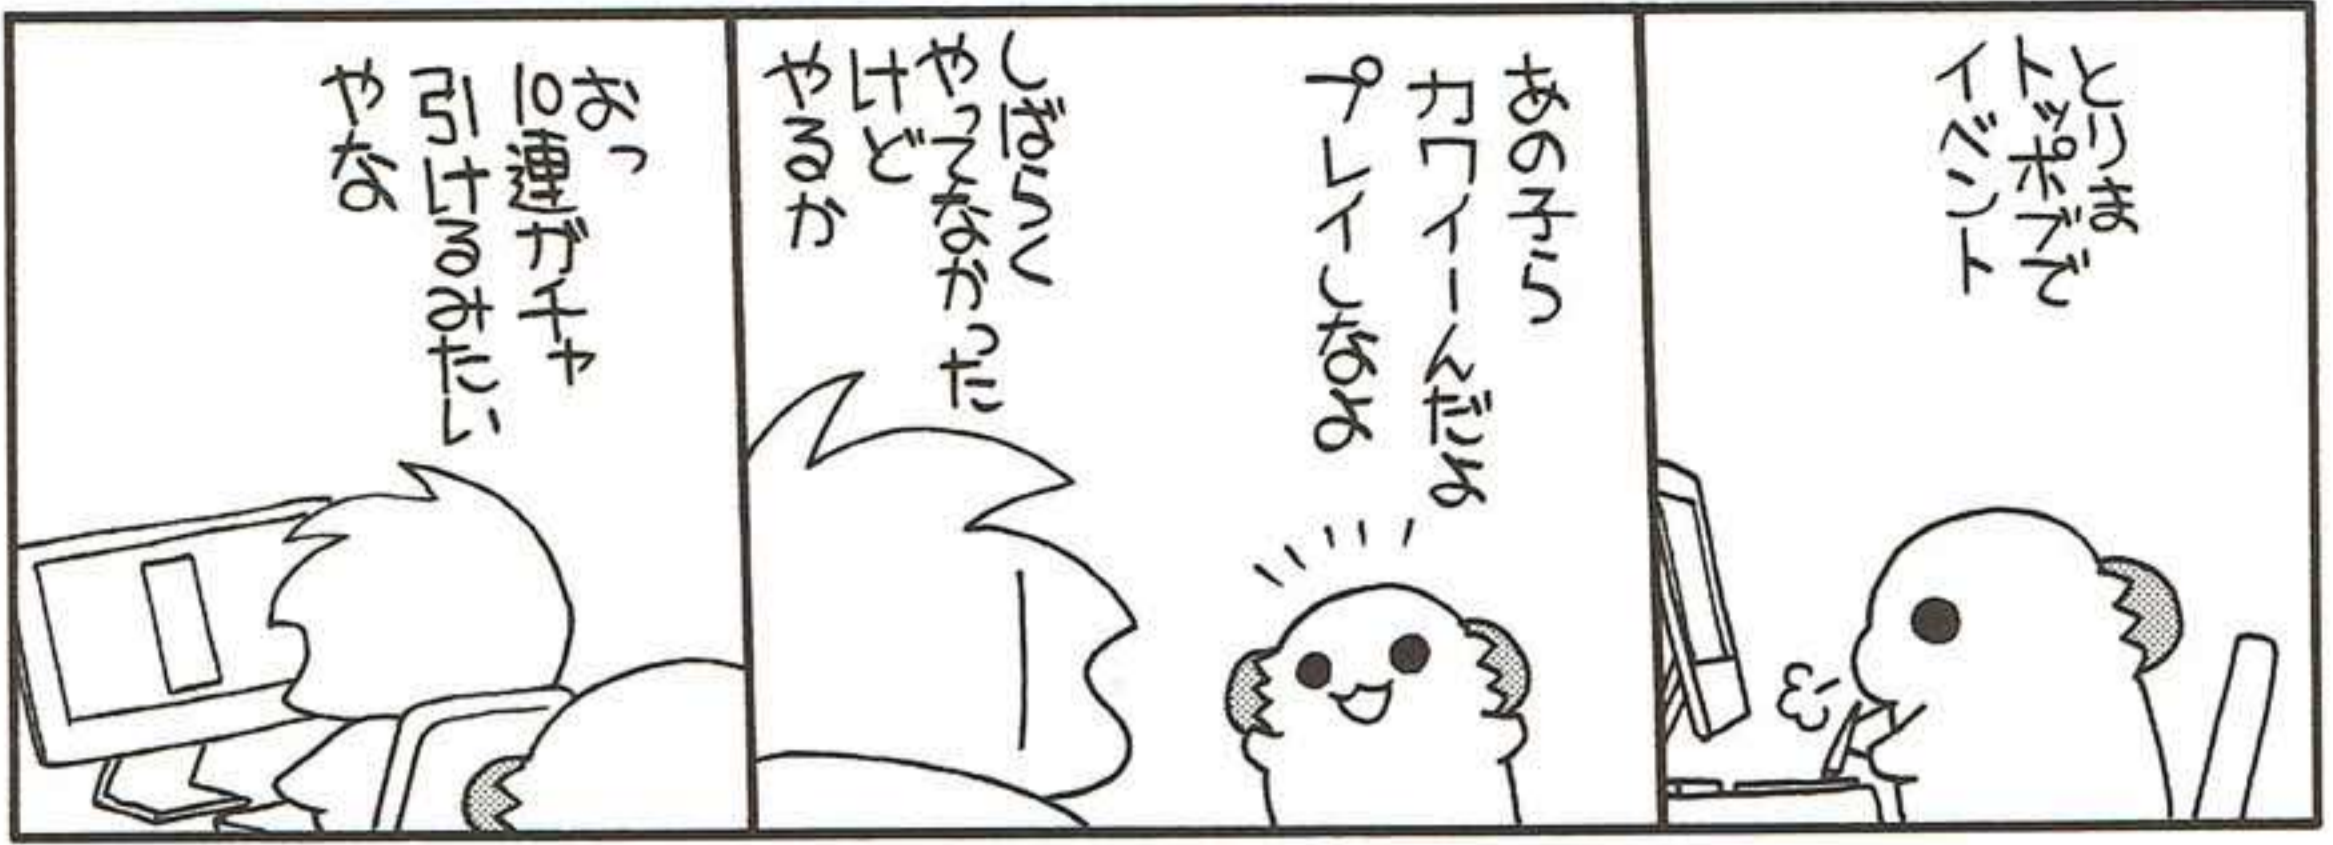 とりま
トッポブで
イベント
あの子ら
カワイーんだよ
プレイしなよ
しばらく
やってなかった
けど
やるか
おっ
10連ガチャ
引けるみたい
やな